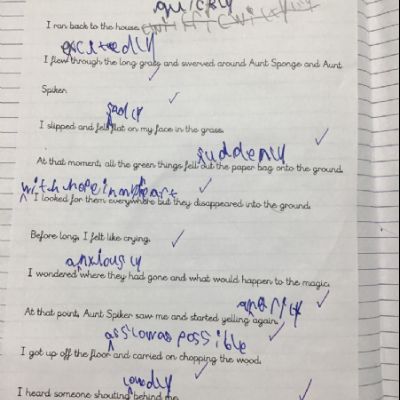 quickly
I ran back to the house.
excitedly
I flew through the long grass and swerved around Aunt Sponge and Aunt
Spiker.
sadly
I slipped and fell flat on my face in the grass.
suddenly
At that moment, all the green things fell out the paper bag onto the ground.
with hope in my heart
I looked for them everywhere but they disappeared into the ground.
Before long, I felt like crying.
anxiously
I wondered where they had gone and what would happen to the magic.
angrily
At that point, Aunt Spiker saw me and started yelling again.
as slow as possible
I got up off the floor and carried on chopping the wood.
loudly
I heard someone shouting behind me